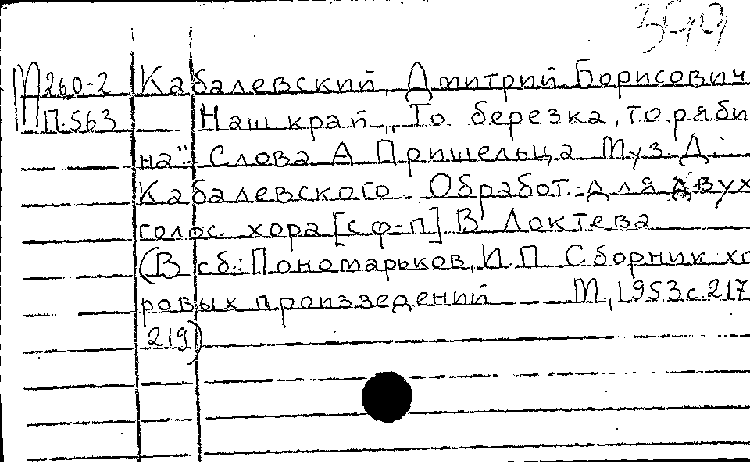 М260-2 Кабалевский, Дмитрий Борисович
П-563 Наш край „То березка, то ряби
на" Слова А Пришельца Муз. Д.
Кабалевского Обработ. для двух
голос хора [с ф-п] В Локтева
(В сб.: Пономарьков, И.П Сборник хо
ровых произведений М, 1953 с. 217
219)